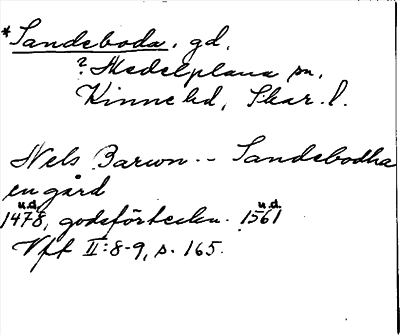 *Sandeboda, gd,
? Medelplana sn,
Kinne hd, Skar. l.
Nels Barun -- Sandebodha
en gård
u.d. u.d.
1478, godsförteckn. 1561
Vff II:8-9, s. 165.